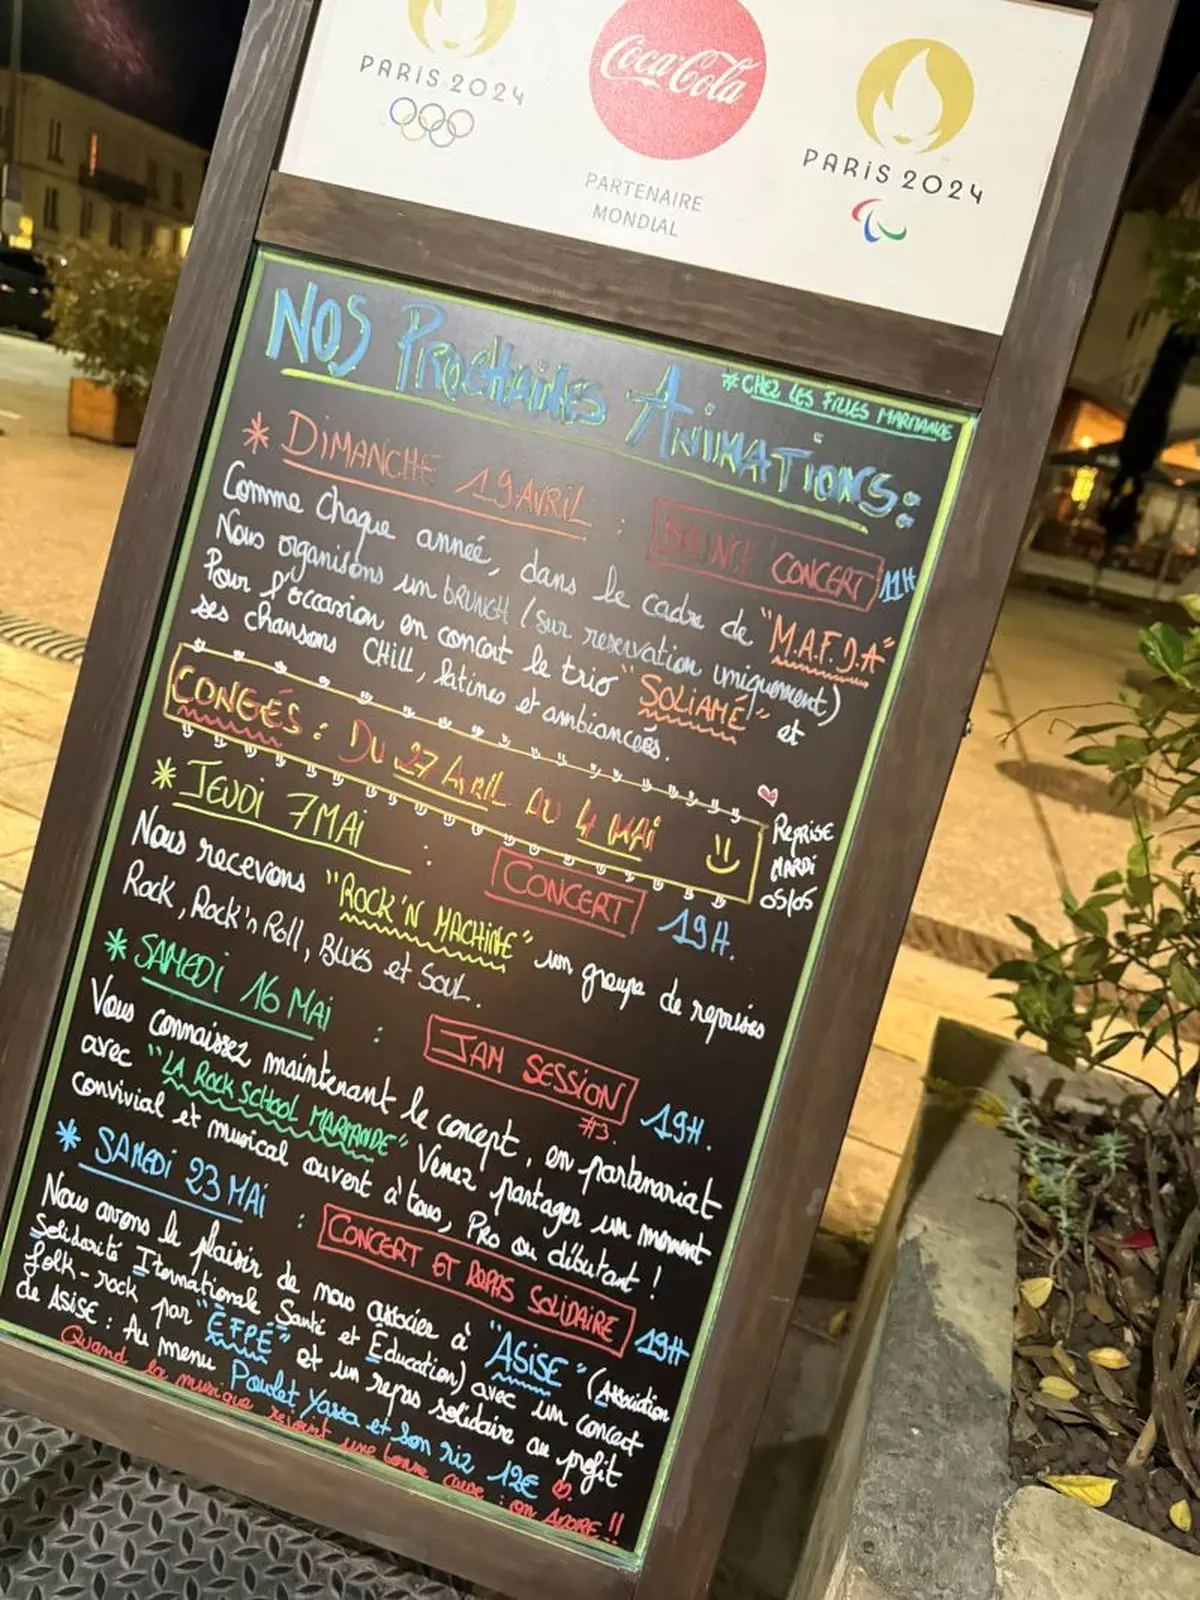 PARIS 2024
Coca-Cola
PARTENAIRE
MONDIAL
PARIS 2024
NOS PROCHAINES ANIMATIONS:
*CHEZ LES FILLES MARMANDE
* DIMANCHE 19 AVRIL : BRUNCH CONCERT 11H
Comme chaque année, dans le cadre de "M.A.F.D.A"
Nous organisons un BRUNCH (sur reservation uniquement)
Pour l'occasion en concert le trio "SOLIAMÉ" et
ses chansons CHILL, latines et ambiancées.
CONGÉS : DU 27 AVRIL AU 4 MAI
REPRISE
MARDI
05/05
* JEUDI 7 MAI : CONCERT 19H.
Nous recevons "ROCK'N MACHINE" un groupe de reprises
Rock, Rock'n Roll, Blues et Soul.
* SAMEDI 16 MAI : JAM SESSION 19H.
#3.
Vous connaissez maintenant le concept, en partenariat
avec "LA ROCK SCHOOL MARMANDE" Venez partager un moment
convivial et musical ouvert à tous, PRO ou débutant !
* SAMEDI 23 MAI : CONCERT ET REPAS SOLIDAIRE 19H
Nous avons le plaisir de nous associer à "ASISE" (Association
Solidarité Internationale Santé et Education) avec un concert
folk-rock par "EFPÉ" et un repas solidaire au profit
de ASISE : Au menu Poulet Yassa et son riz 12€
Quand la musique rejoint une bonne cause : on ADORE !!